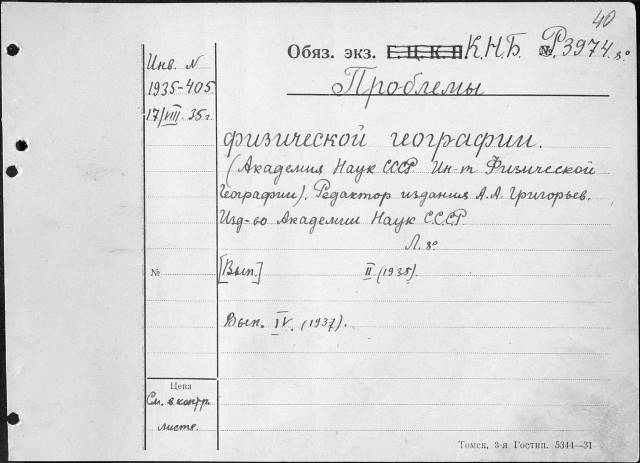 40
Обяз. экз. Г.Ц.К.П К.Н.Б. № Р3974. 8°
Инв. N
1935-405
17/VIII. 35 г.
Проблемы
физической географии.
(Академия Наук СССР Ин-т Физической
Географии). Редактор издания А.А. Григорьев.
Изд-во Академии Наук СССР
Л. 8°
№ [Вып.] II (1935).
Вып. IV. (1937).
Цена
См. в контр.
листе.
Томск, 3-я Гостип. 5344—31